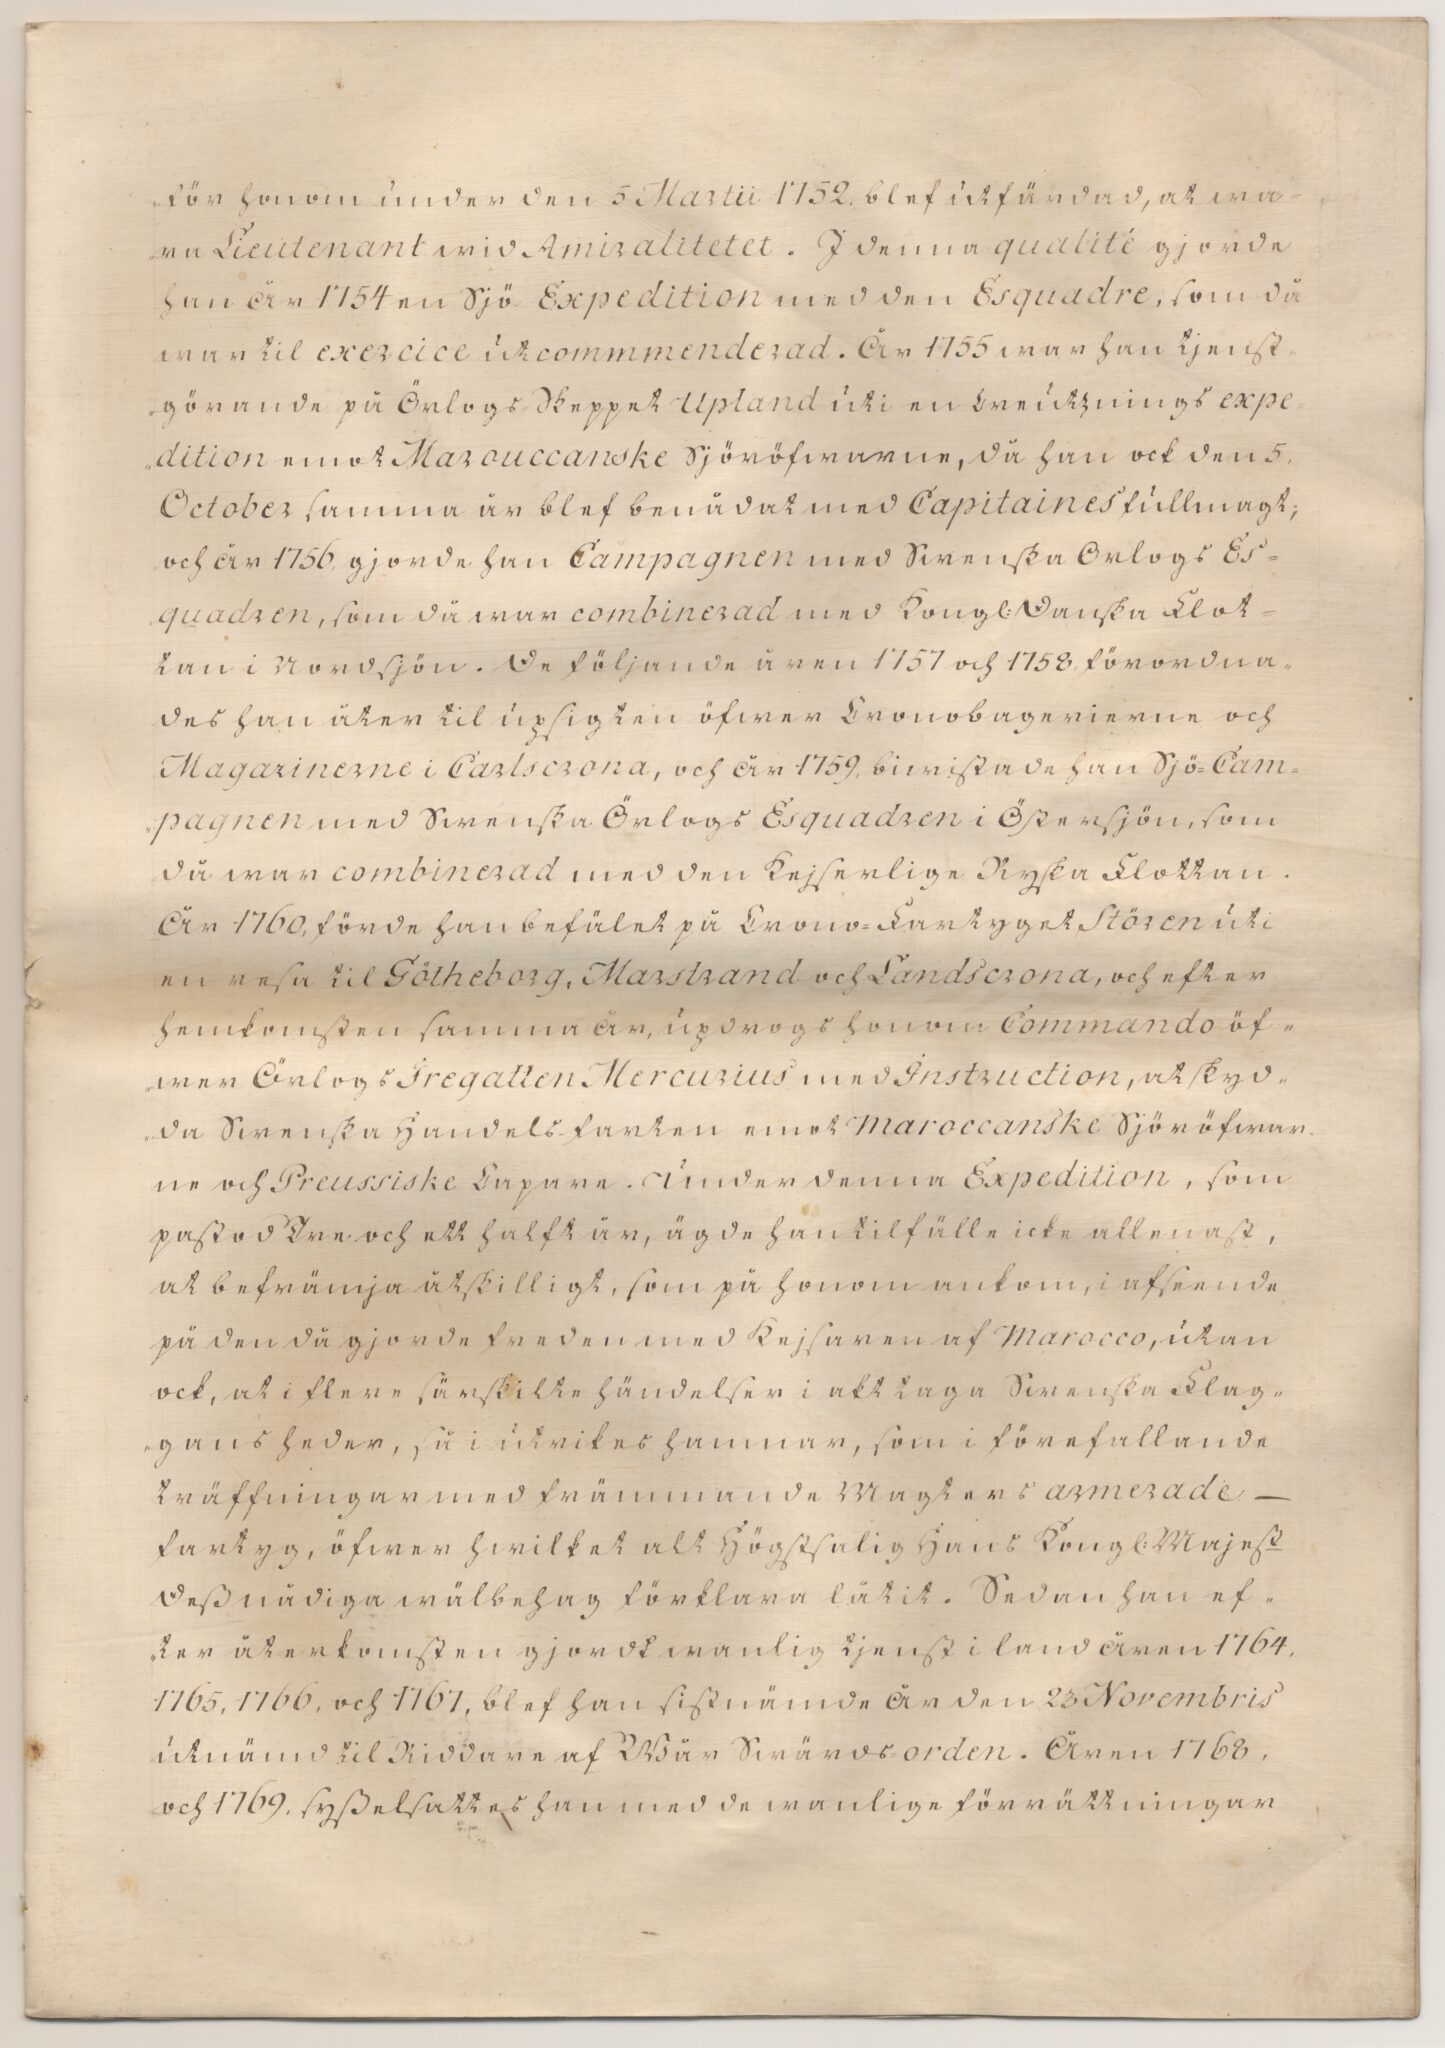 för honom under den 5 Martii 1752. blef utfärdad, at wa-
ra Lieutenant wid Amiralitetet. I denna qualité gjorde
han år 1754 en Sjö-Expedition med den Esquadre, som då
war til exercice utcommmenderad. År 1755 war han tjenst-
görande på Örlogs Skeppet Upland uti en Creutznings expe-
dition emot Marouccanske Sjöröfwarne, då han ock den 5.
October samma år blef benådat med Capitaines fullmagt;
och år 1756. gjorde han Campagnen med Swenska Orlogs Es-
quadren, som då war combinerad med Kongl: Danska Flot-
tan i Nordsjön. De följande åren 1757 och 1758. förordna-
des han åter til upsigten öfwer Cronobagerierne och
Magazinerne i Carlscrona, och år 1759. biwistade han Sjö-Cam-
pagnen med Swenska Örlogs Esquadren i Östersjön, som
då war combinerad med den Kejserlige Ryska Flottan.
År 1760. förde han befälet på Crono-Fartyget Stören uti
en resa til Götheborg, Marstrand och Landscrona, och efter
hemkomsten samma år, updrogs honom Commando öf-
wer Örlogs Fregatten Mercurius med Instruction, at skyd-
da Swenska Handels-farten emot Maroccanske Sjöröfwar-
ne och Preussiske Capare. Under denna Expedition, som
pastod Tre och ett halft år, ägde han tilfälle icke allenast,
at befrämja åtskilligt, som på honom ankom, i afseende
på den då gjorde freden med Kejsaren af Marocco, utan
ock, at i flere särskilte händelser i akttaga Swenska Flag-
gans heder, så i utrikes hamnar, som i förefallande
träffningar med främmande Magters armerade
fartyg, öfwer hwilket alt Högstsalig Hans Kongl: Majest
Deß nådiga wälbehag förklara låtit. Sedan han ef-
ter återkomsten gjordt wanlig tjenst i land åren 1764.
1765, 1766, och 1767, blef han sistnämde år den 23 Novembris
utnämd til Riddare af Wår Swärds-orden. Åren 1768,
och 1769. syßelsattes han med de wanlige förrättningar